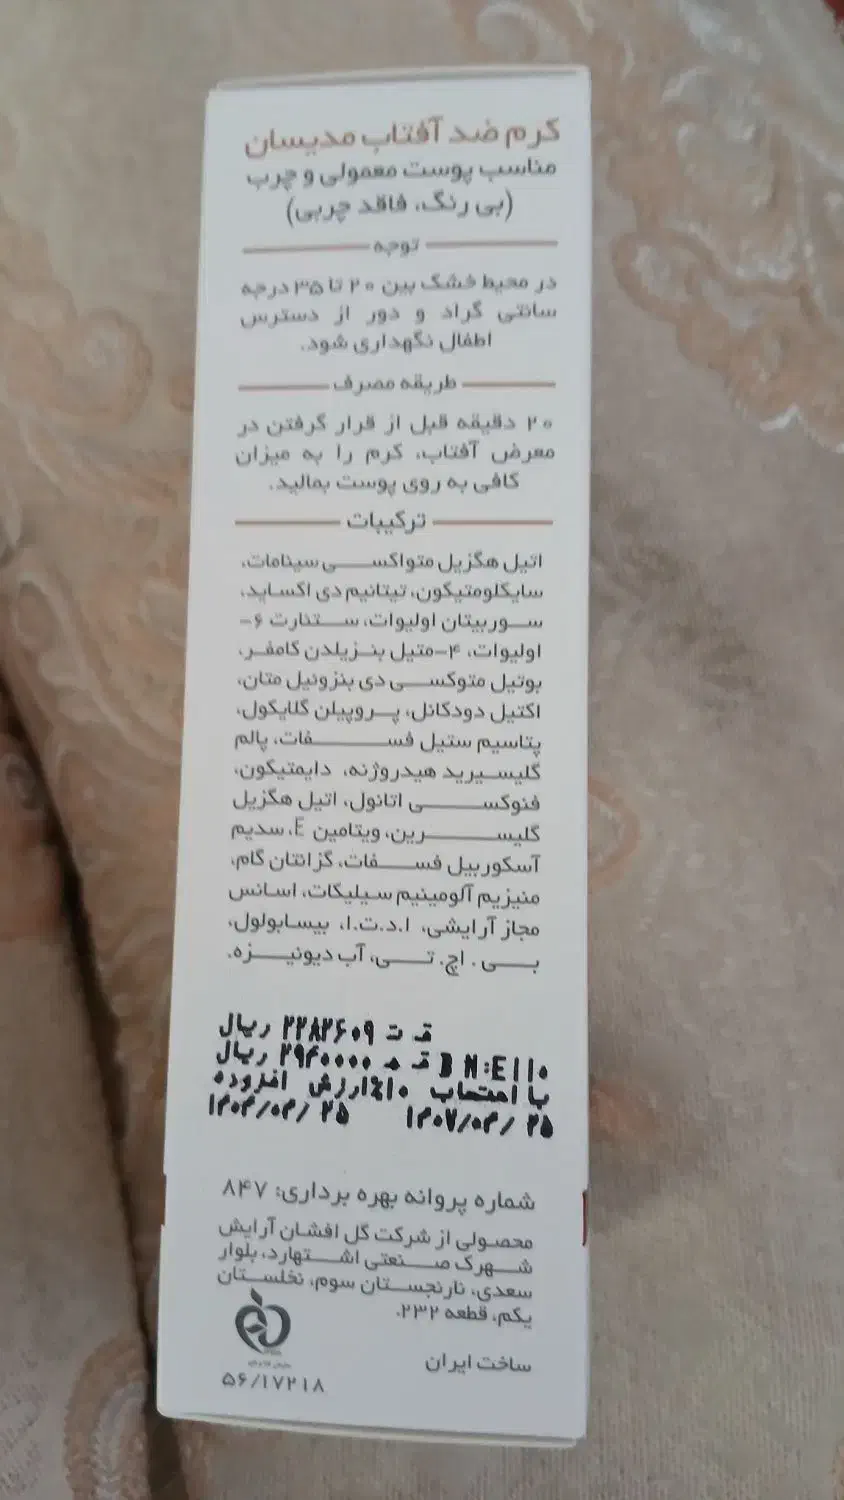 کرم ضد آفتاب مدیسان
مناسب پوست معمولی و چرب
(بی رنگ، فاقد چربی)
توجه
در محیط خشک بین ۲۰ تا ۳۵ درجه
سانتی گراد و دور از دسترس
اطفال نگهداری شود.
طریقه مصرف
۲۰ دقیقه قبل از قرار گرفتن در
معرض آفتاب، کرم را به میزان
کافی به روی پوست بمالید.
ترکیبات
اتیل هگزیل متواکسی سینامات،
سایکلومتیکون، تیتانیم دی اکساید،
سوربیتان اولیوات، ستئارت ۶-
اولیوات، ۴-متیل بنزیلدن کامفر،
بوتیل متوکسی دی بنزوئیل متان،
اکتیل دودکانل، پروپیلن گلایکول،
پتاسیم ستیل فسفات، پالم
گلیسیرید هیدروژنه، دایمتیکون،
فنوکسی اتانول، اتیل هگزیل
گلیسرین، ویتامین E، سدیم
آسکوربیل فسفات، گزانتان گام،
منیزیم آلومینیم سیلیکات، اسانس
مجاز آرایشی، ا.د.ت.ا، بیسابولول،
بی . اچ. تی، آب دیونیزه.
ق ت ۲۲۸۲۶۰۹ ریال
BN:E110 ق م ۲۹۴۰۰۰۰ ریال
با احتساب ۱۰٪ارزش افزوده
۱۴۰۷/۰۴/۲۵ ۱۴۰۴/۰۴/۲۵
شماره پروانه بهره برداری: ۸۴۷
محصولی از شرکت گل افشان آرایش
شهرک صنعتی اشتهارد، بلوار
سعدی، نارنجستان سوم، نخلستان
یکم، قطعه ۲۳۲.
ساخت ایران
۵۶/۱۷۲۱۸